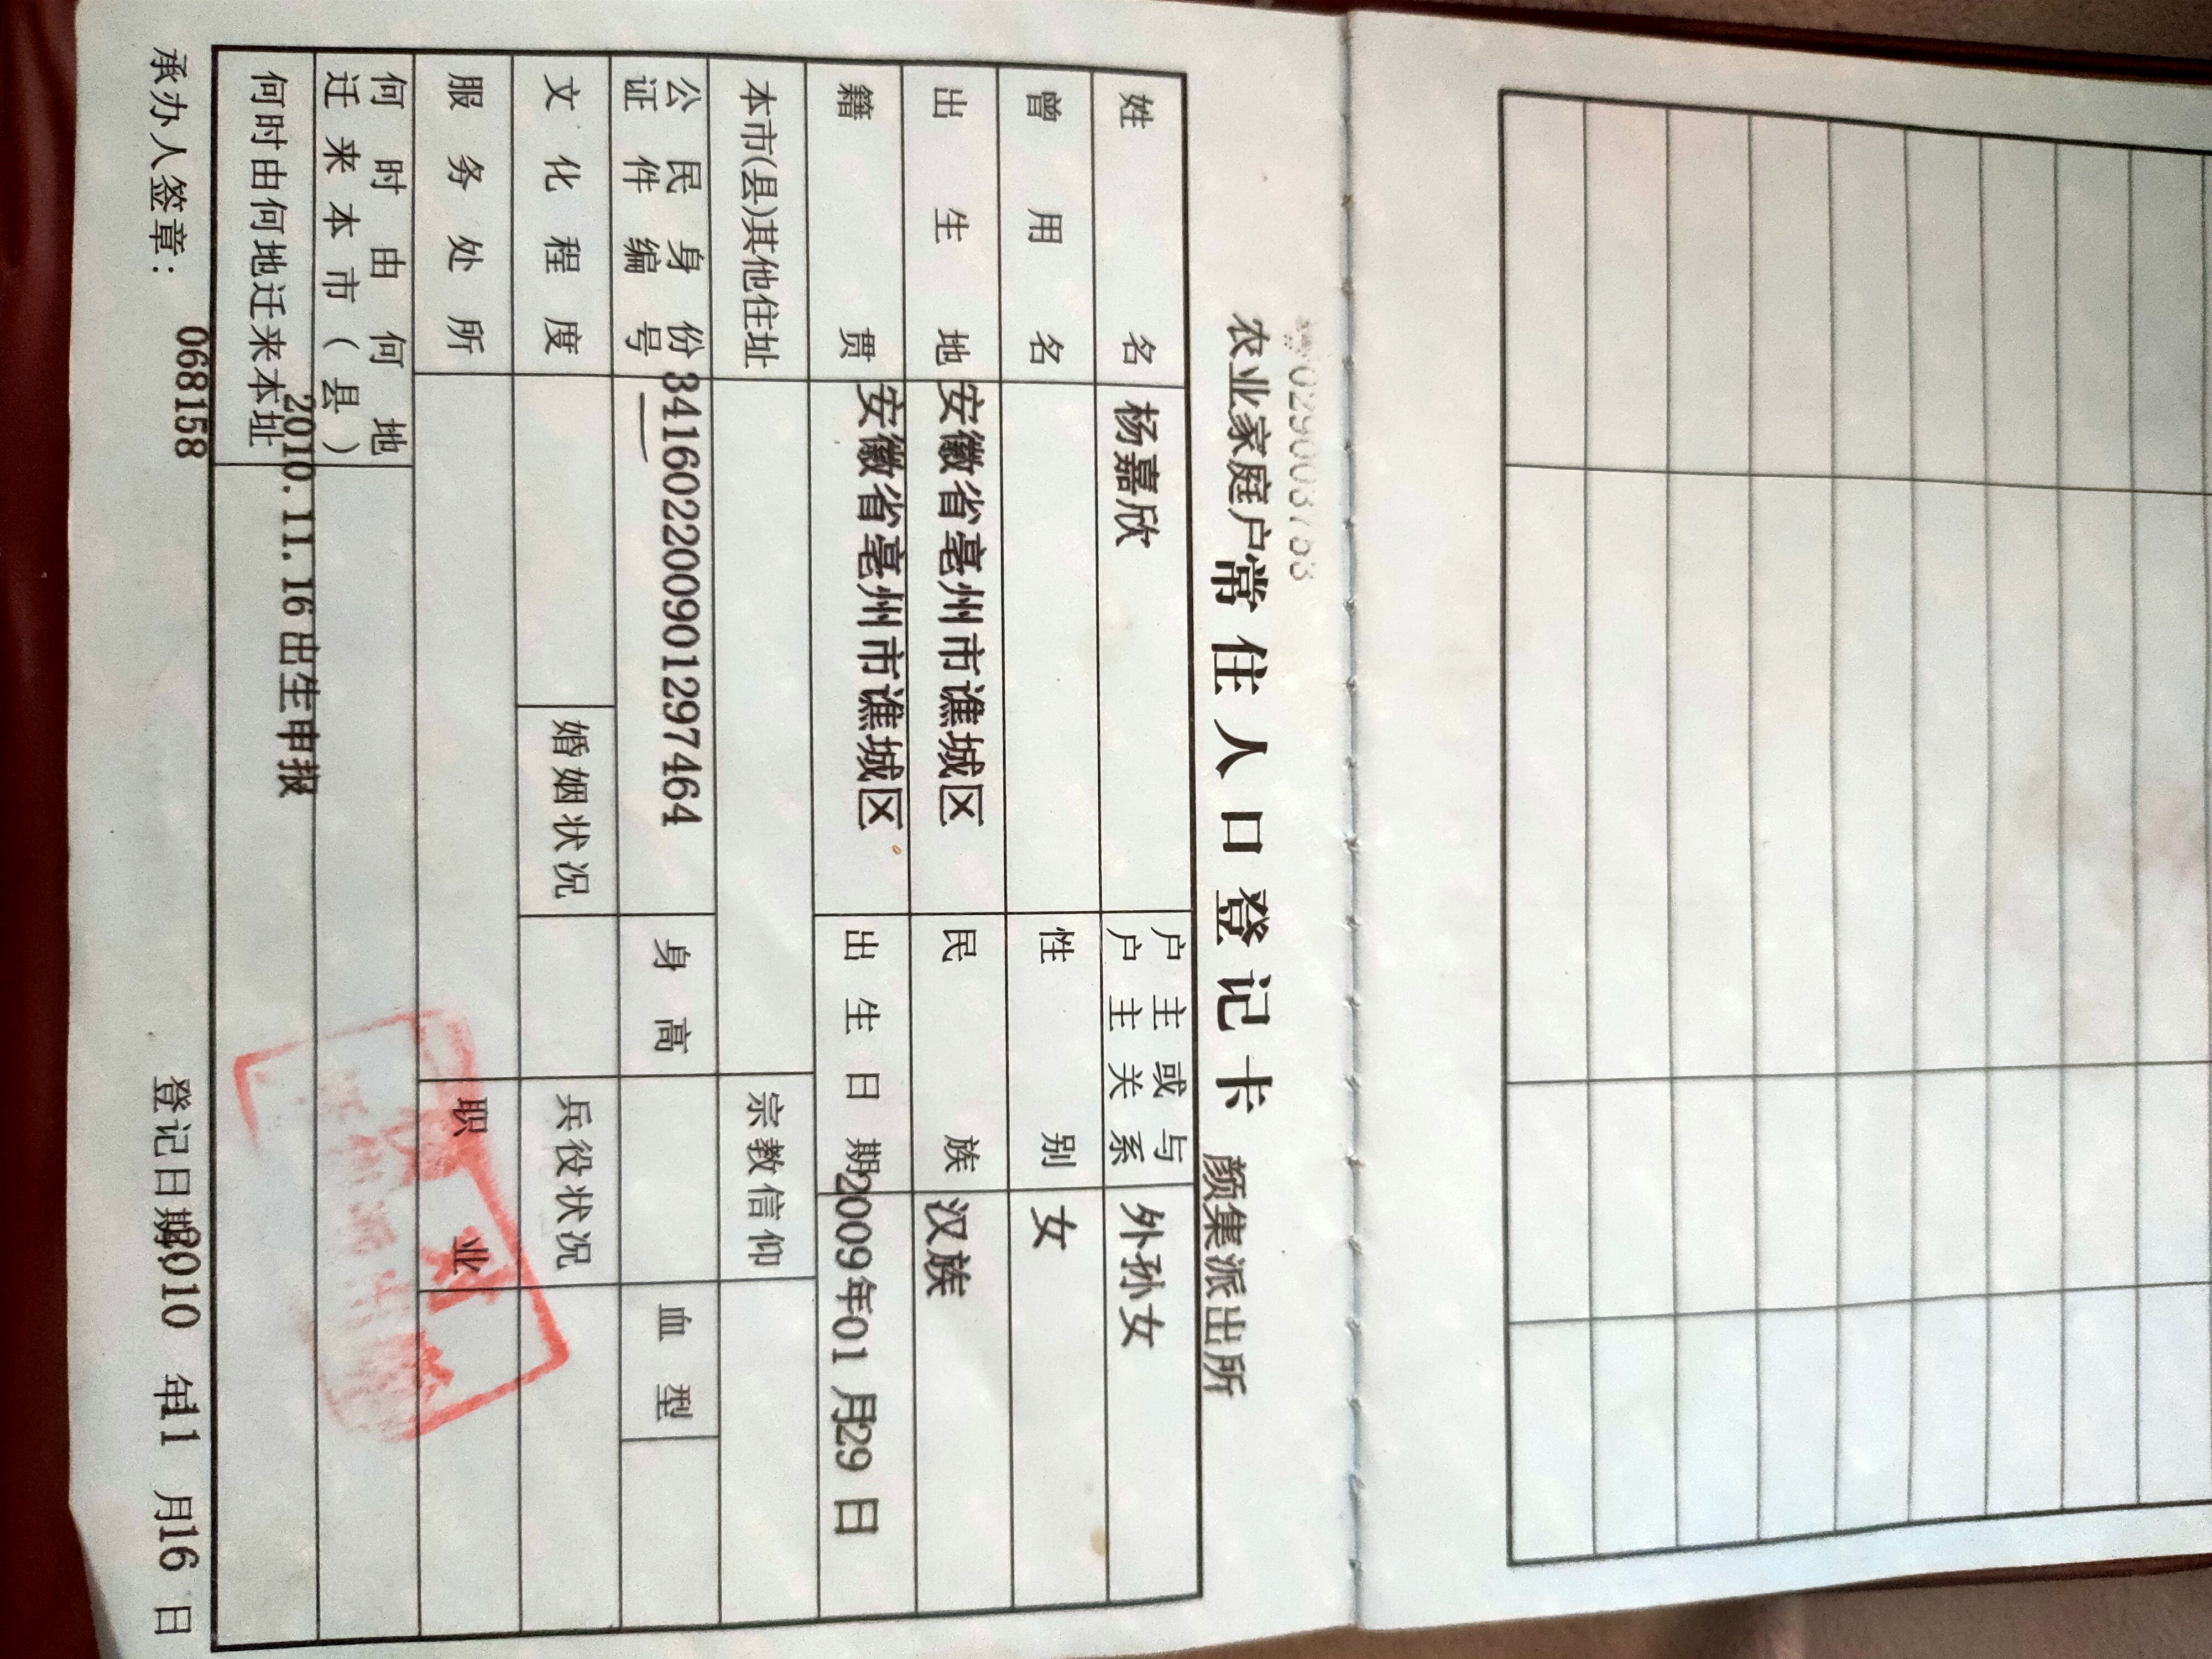 农业家庭户常住人口登记卡 颜集派出所
姓名 杨嘉欣 户主或与户主关系 外孙女
曾用名 性别 女
出生地 安徽省亳州市谯城区 民族 汉族
籍贯 安徽省亳州市谯城区 出生日期 2009年01月29日
本市(县)其他住址 宗教信仰
公民身份证件编号 341602200901297464 身高 血型
文化程度 婚姻状况 兵役状况
服务处所 职业
何时由何地迁来本市(县)
何时由何地迁来本址 2010.11.16出生申报
承办人签章: 0681158 登记日期 2010年11月16日